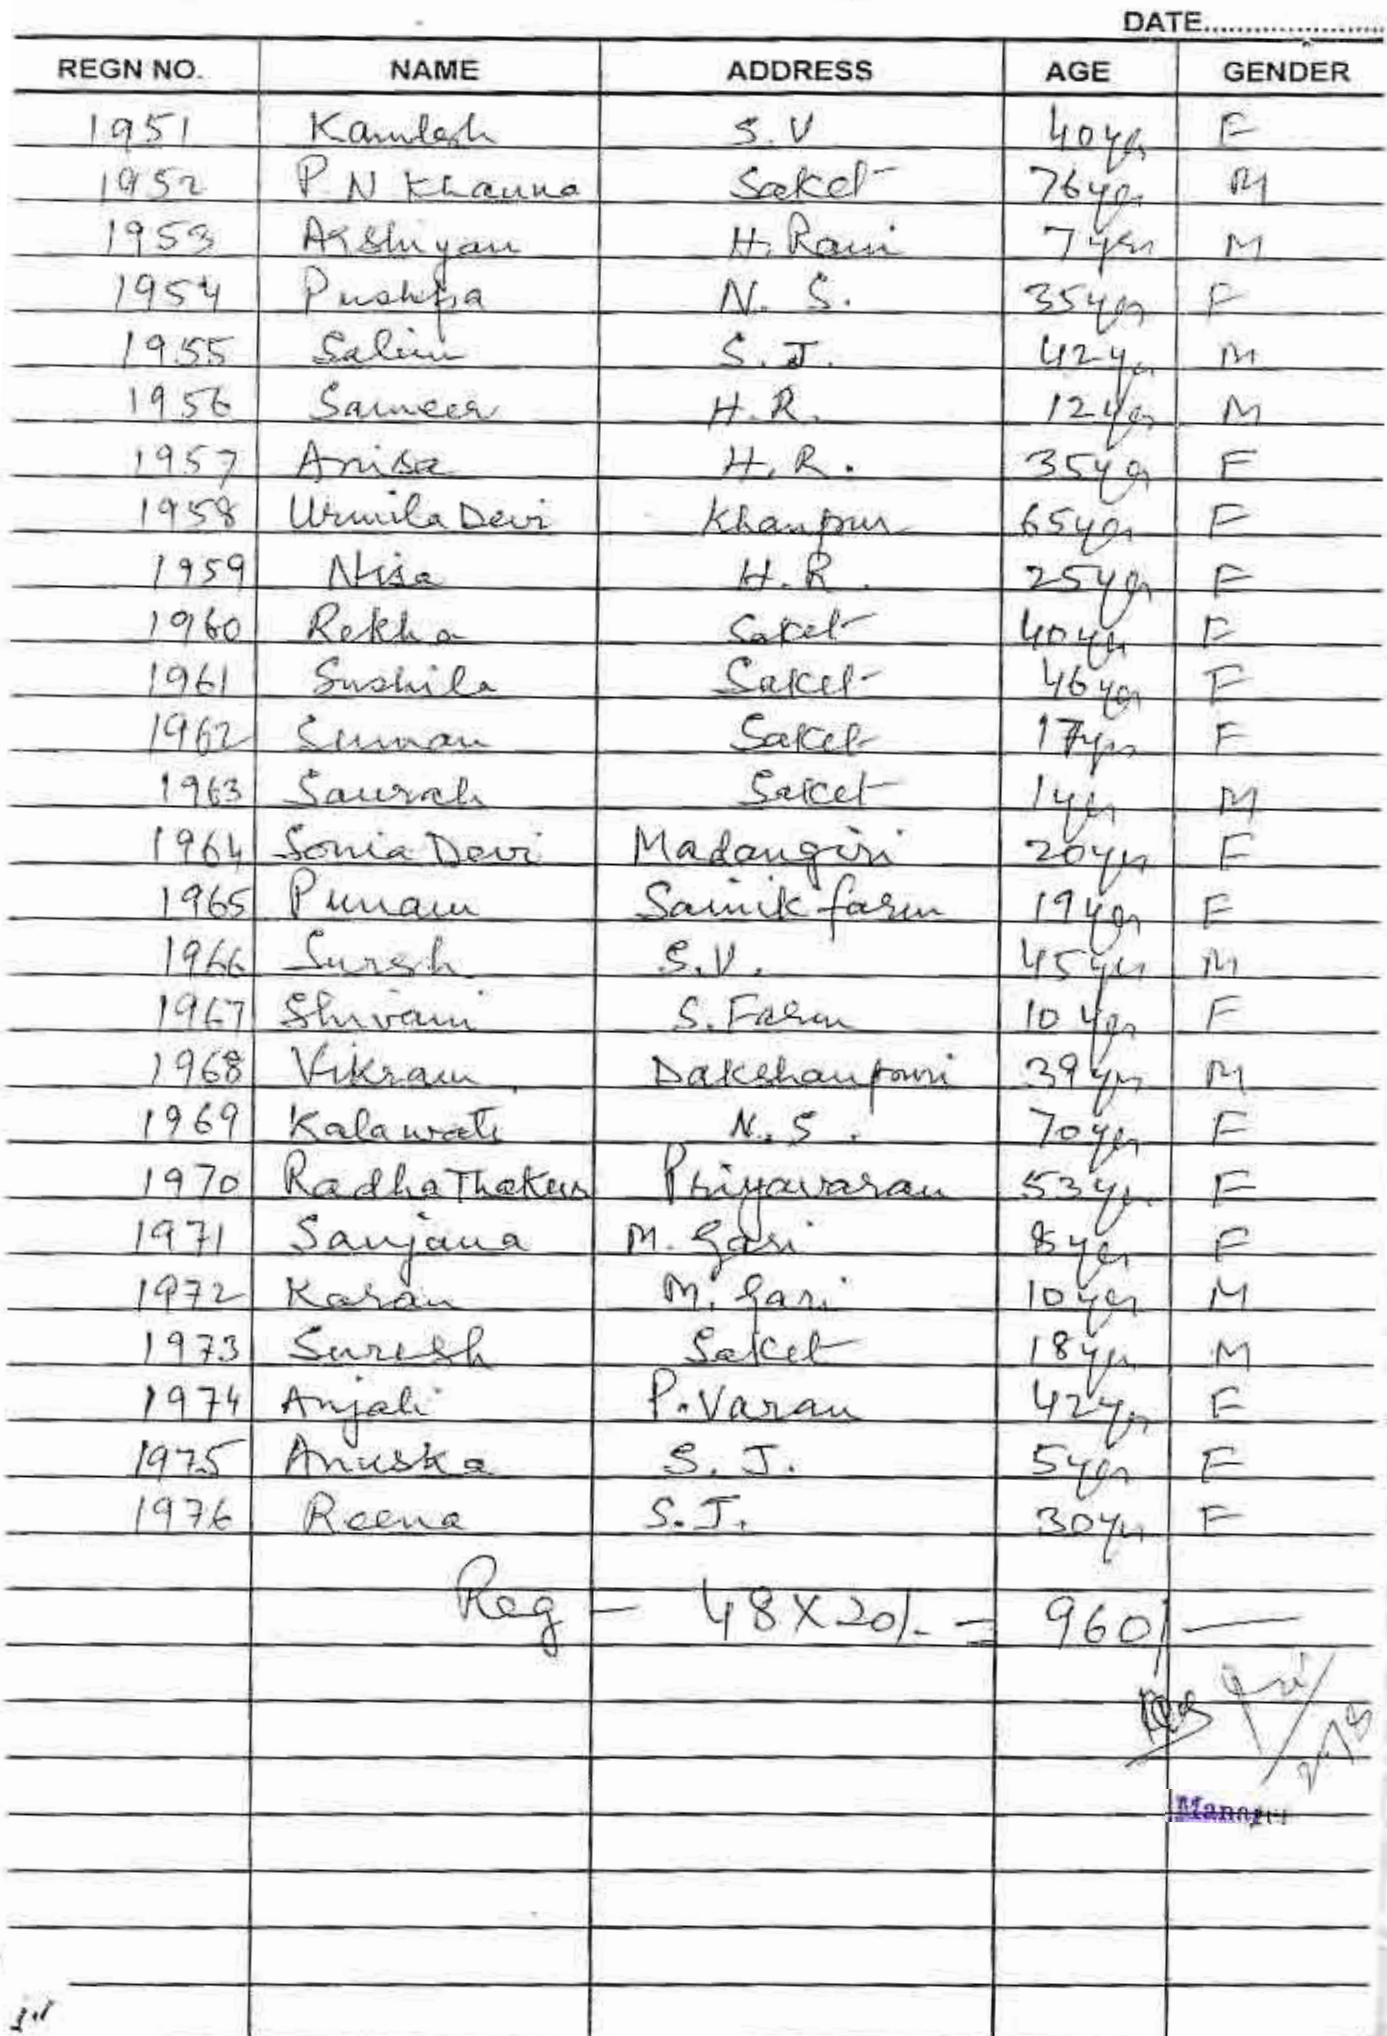 DATE......................
REGN NO. NAME ADDRESS AGE GENDER
1951 Kamlesh S.V 40yrs F
1952 P N Khanna Saket 76yrs M
1953 Arshiyan H. Rani 7 yrs M
1954 Pushpa N. S. 35yrs F
1955 Salim S. J. 42yrs M
1956 Sameer H.R. 12yrs M
1957 Anisa H.R. 35yrs F
1958 Urmila Devi Khanpur 65yrs F
1959 Nisa H.R. 25yrs F
1960 Rekha Saket 40yrs F
1961 Sushila Saket 46yrs F
1962 Suman Saket 17yrs F
1963 Saurah Saket 1yrs M
1964 Sonia Devi Madangiri 20yrs F
1965 Punam Sainik farm 19yrs F
1966 Suresh S.V. 45yrs M
1967 Shivani S. Farm 10 yrs F
1968 Vikram Dakshanpuri 39yrs M
1969 Kalawati N.S. 70yrs F
1970 Radha Thakur Priyavaran 53yrs F
1971 Sanjana M. Gari 8yrs F
1972 Karan M. Gari 10yrs M
1973 Suresh Saket 18yrs M
1974 Anjali P. Varan 42yrs F
1975 Anuska S. J. 5yrs F
1976 Reena S.J. 30yrs F
Reg - 48X20/- = 960/-
Manager